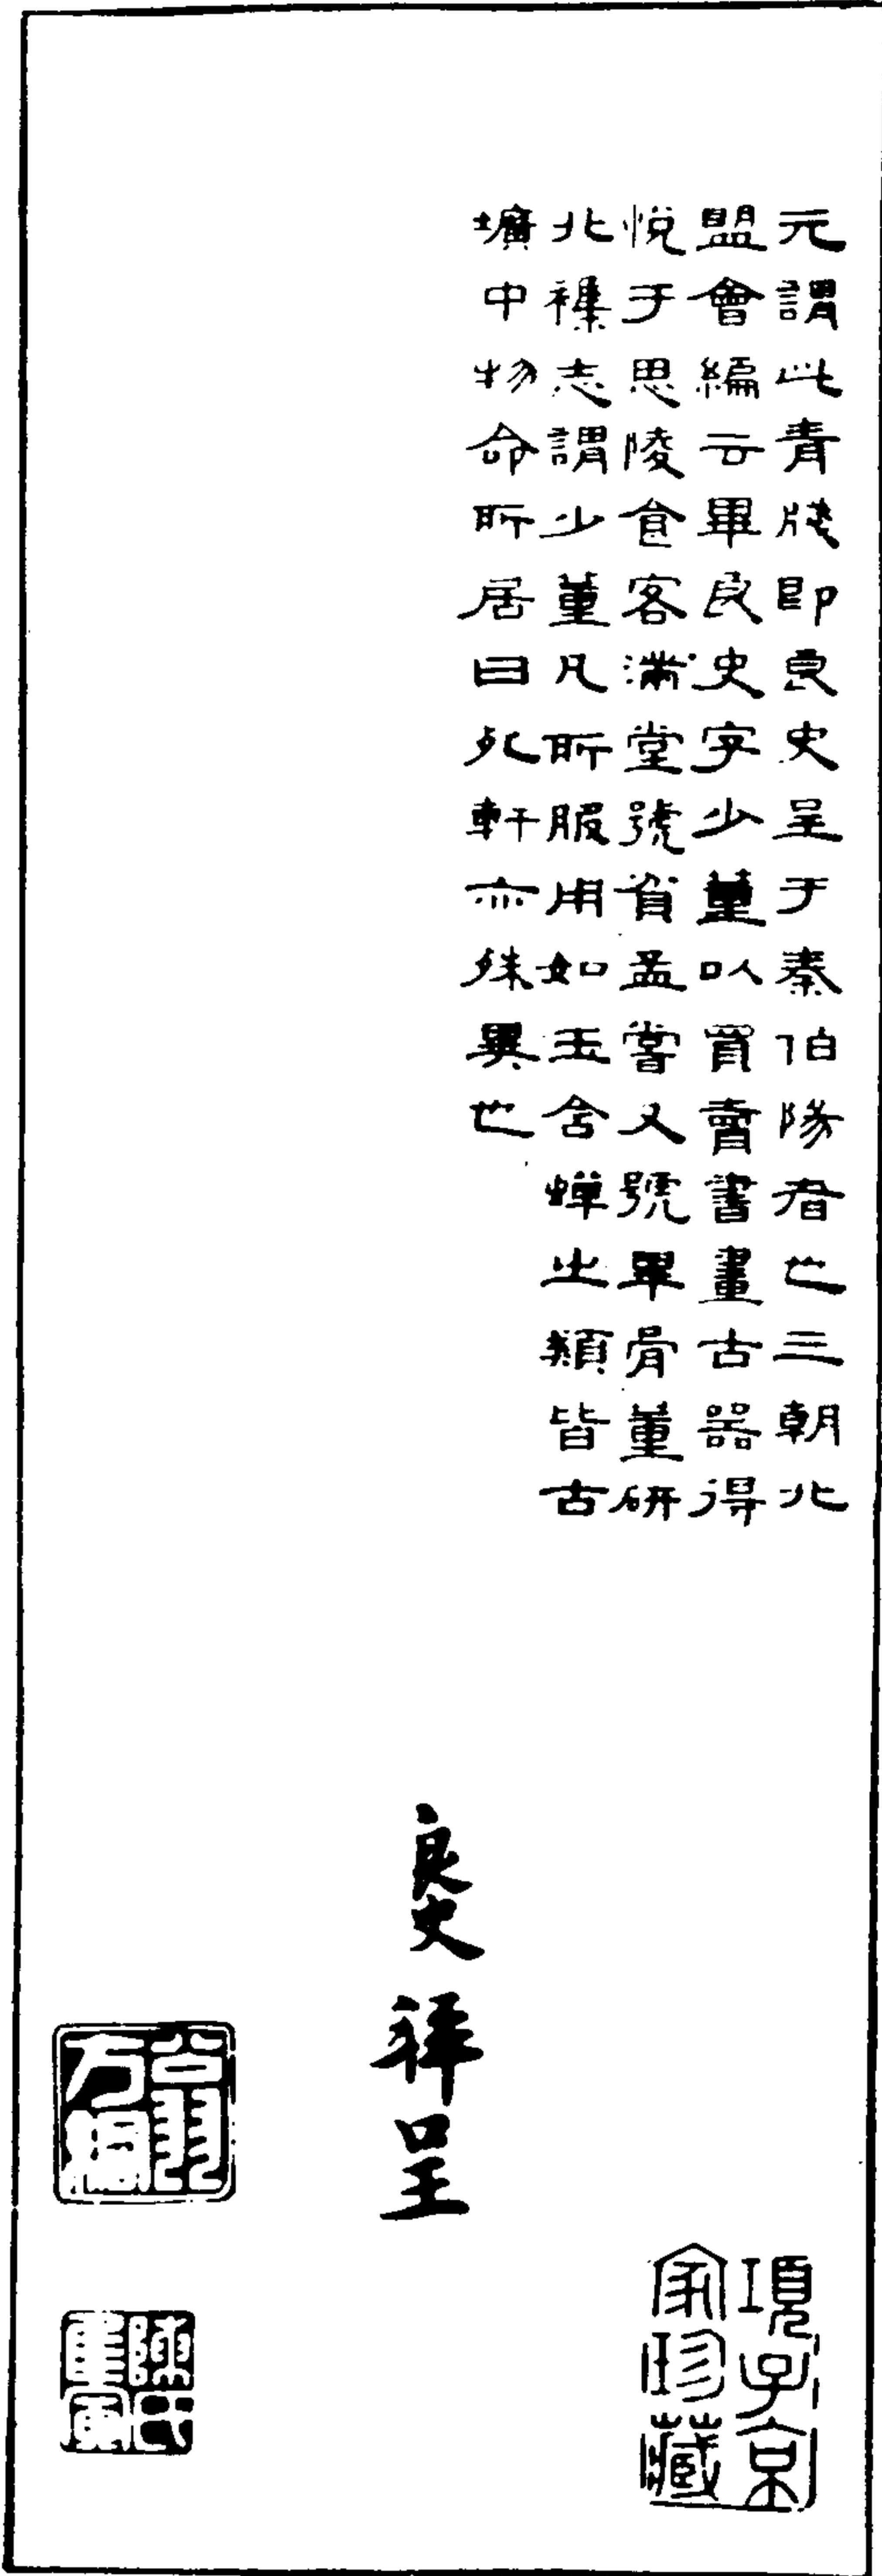 元謂此青牋即良史呈于秦伯陽者也三朝北
盟會編云畢良史字少董以買賣書畫古器得
悅于思陵食客滿堂號省孟嘗又號畢骨董研
北襍志謂少董凡所服用如玉含蟬之類皆古
壙中物命所居曰死軒亦殊異也
良史拜呈
項子京
家珍藏
陳氏